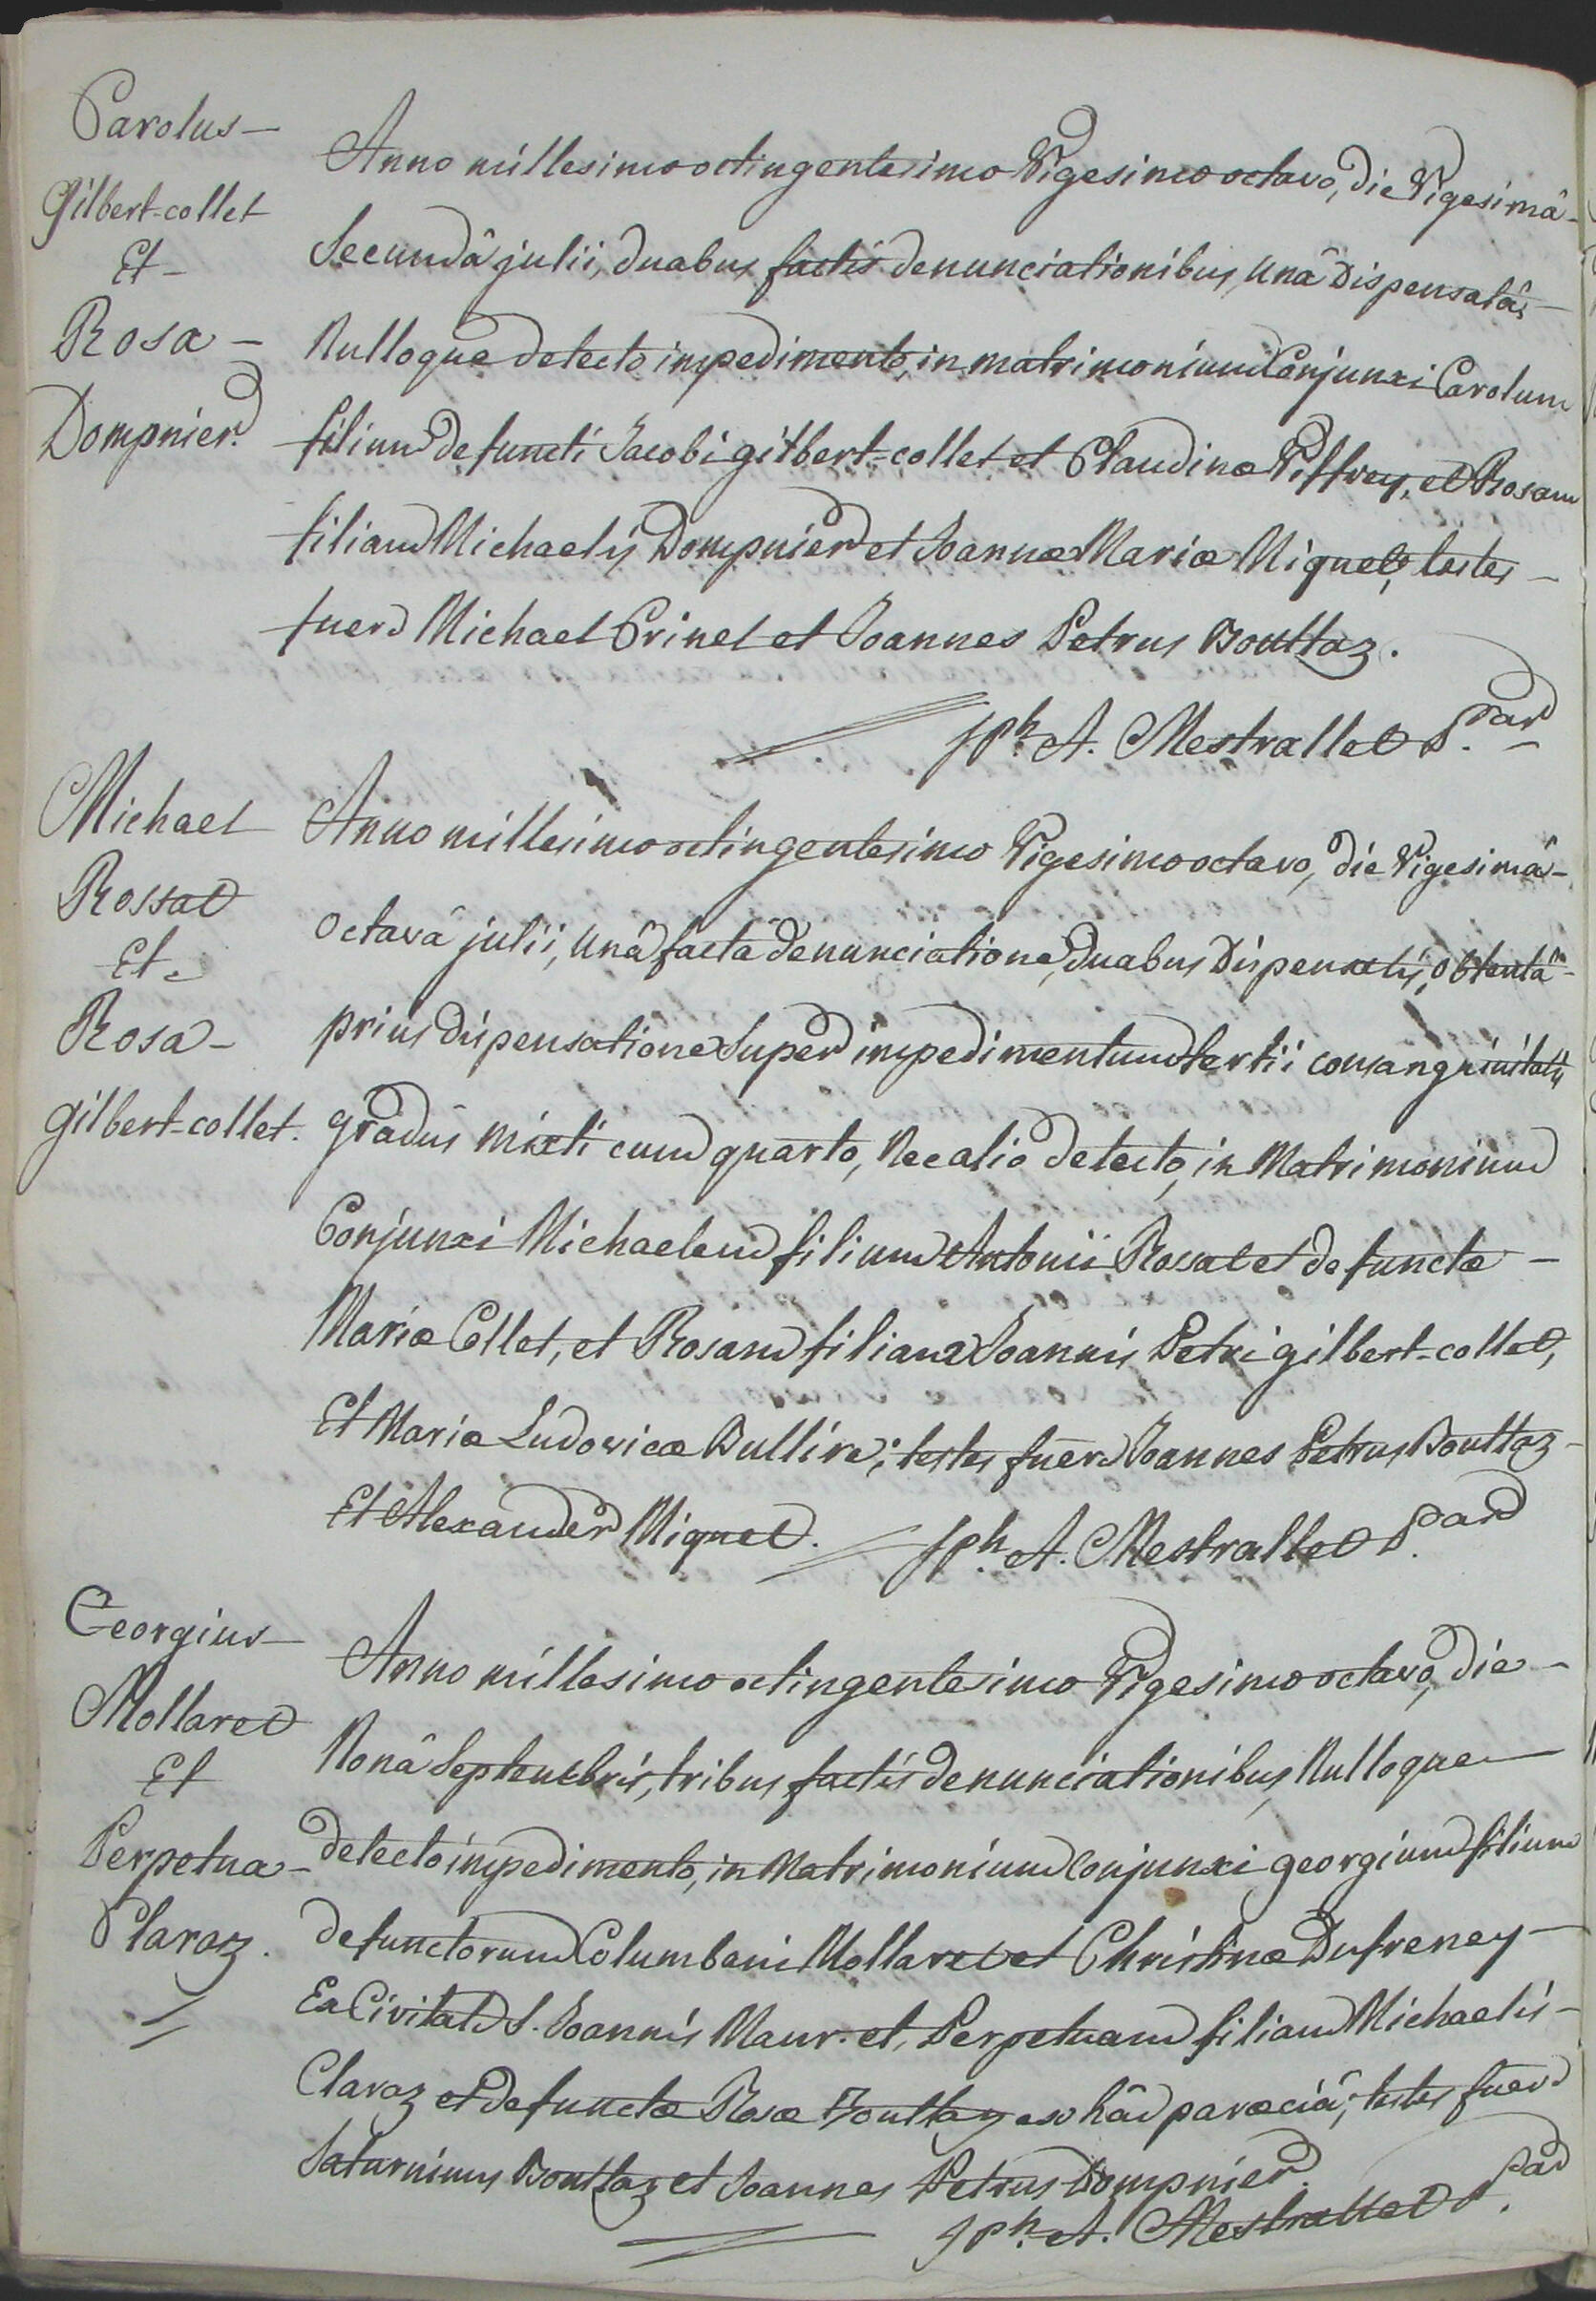 Carolus -
Gilbert-collet
Et -
Rosa -
Dompnier.
Anno millesimo octingentesimo Vigesimo octavo, die Vigesimâ -
Secundâ julii, duabus factis denunciationibus, unâ Dispensatâ, -
Nulloque detecto impedimento, in matrimonium Conjunxi Carolum
filium defuncti Jacobi gilbert-collet et Claudinæ Viffrey, et Rosam
filiam Michaelis Dompnier et Joannæ Mariæ Miquel, testes -
fuere Michael Crinel et Joannes Petrus Bouttaz.
Jph. A. Mestrallet P. -
Michael
Rossat
Et -
Rosa -
gilbert-collet.
Anno millesimo octingentesimo Vigesimo octavo, die Vigesimâ -
octavâ julii, unâ factâ denunciatione, duabus Dispensatis, obtentâ -
prius dispensatione Super impedimentum tertii consanguinitatis
gradûs mixti cum quarto, Nec alio detecto, in Matrimonium
Conjunxi Michaelem filium Antonii Rossat et defunctæ -
Mariæ Collet, et Rosam filiam Joannis Petri gilbert-collet,
Et Mariæ Ludovicæ Dullire; testes fuere Joannes Petrus Bouttaz -
Et Alexander Miquel. Jph. A. Mestrallet P.
Georgius -
Mollaret
Et
Perpetua -
Claraz.
Anno millesimo octingentesimo Vigesimo octavo, die -
Nonâ Septembris, tribus factis denunciationibus, Nulloque -
detecto impedimento, in Matrimonium Conjunxi georgium filium
defunctorum Columbani Mollaret et Christinæ Dufreney -
Ex Civitate S. Joannis Maur. et Perpetuam filiam Michaelis -
Claraz et defunctæ Rosæ Bouttaz ex hâc parœciâ; testes fuere
Saturninus Bouttaz et Joannes Petrus Dompnier.
Jph. A. Mestrallet P.